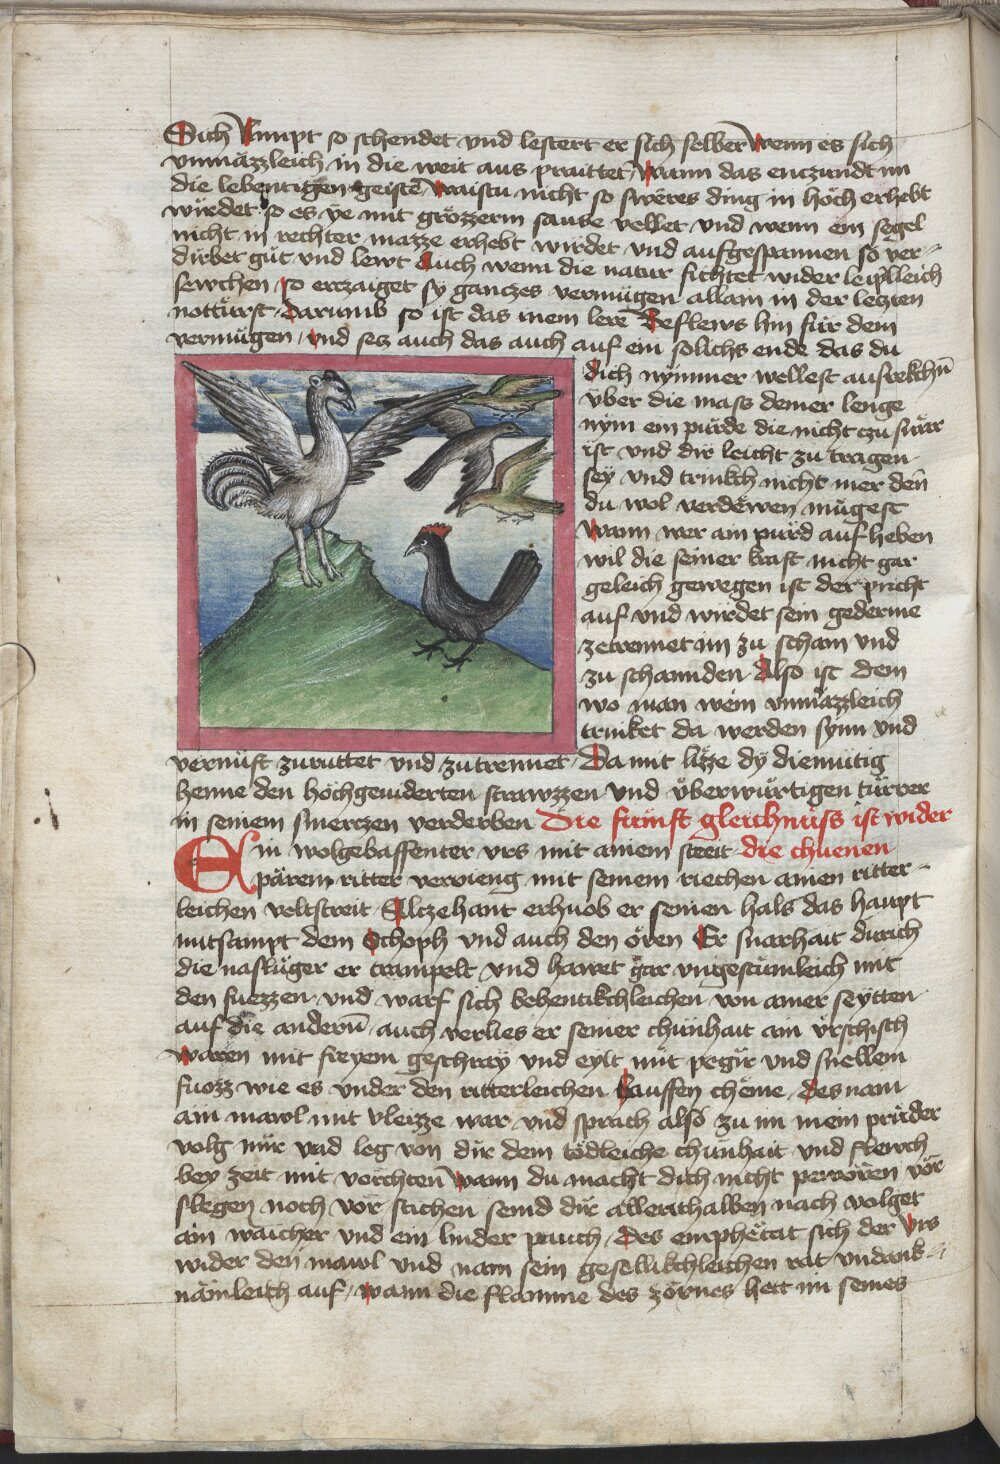 Sich kumpt so schendet vnd lestert er sich selber wenn es sich
vnmäzzleich in die weit aus praittet wann das enczundt im
die lebentigen geiste waistu nicht so swëres ding in höch erhebt
würdet so es ye mit grözzerm sawse vellet vnd wenn ein segel
nicht in rechter mazze erhebt wirdet vnd aufgespannen so ver-
dirbet güt vnd lewt Auch wenn die natur fichtet wider leiplleich
sewchen so erczaiget sy ganczes vermügen allain in der leczten
nottürft darumb so ist das mein lere Fleflews hin für dem
vermügen vnd secz auch das auch auf ein solichs ende das du
dich nymmer wellest aufrekchn̄
über die mass deiner lenge
nÿm ein pürde die nicht czu swär
ist vnd dir leicht zu tragen
seÿ vnd trinkch nicht mer den̄
du wol verdëwen mügest
wann wer ain pürd auf heben
wil die seiner kraft nicht gar
geleich gewegen ist der pricht
auf vnd würdet sein gederme
zetrennet im zu scham vnd
zu schannden Also ist dem
wo man wein vnmäzzleich
trinket da werden synn vnd
vernuft zuruttet vnd zutrennet Damit liezze dy diemütig
henne den höchgeuiderten strawzzen vnd überwürtigen türrer
in seinem smerczen verderben Die fünft gleichnüss ist wider
Ein wolgebaffenter vrs mit ainem streit die chuenen
pärem ritter vervieng mit seinem riechen ainen ritter-
leichen veltstreit Alczehant erhuob er seinen hals das haupt
mitsampt dem Schoph vnd auch den ören Er snarhait durich
die naslüger er trampelt vnd hawet gar vngestümleich mit
den fuezzen vnd warf sich behentikchleichen von ainer seÿtten
auf die andern̄ auch verlies er seiner chünhait ain vrschisch
waren mit freyem geschray vnd eylt mit pegir vnd snellem
fuozz wie es vnder den ritterleichen hauffen chëme des nam
ain mawl mit vleizze war vnd sprach also zu im mein prüder
volg mir vnd leg von dir dem tödtleiche chünhait vnd flewch
bey zeit mit vorchten wann du macht dich nicht pewören vor
slegen noch vor stichen seind dir allenthalben nach volget
ain waicher vnd ein linder pauch des emphëtat sich der vrs
wider den mawl vnd nam sein gesellikchleichen rat vndank
nämleich auf wann die flamme des zornes hett im seines